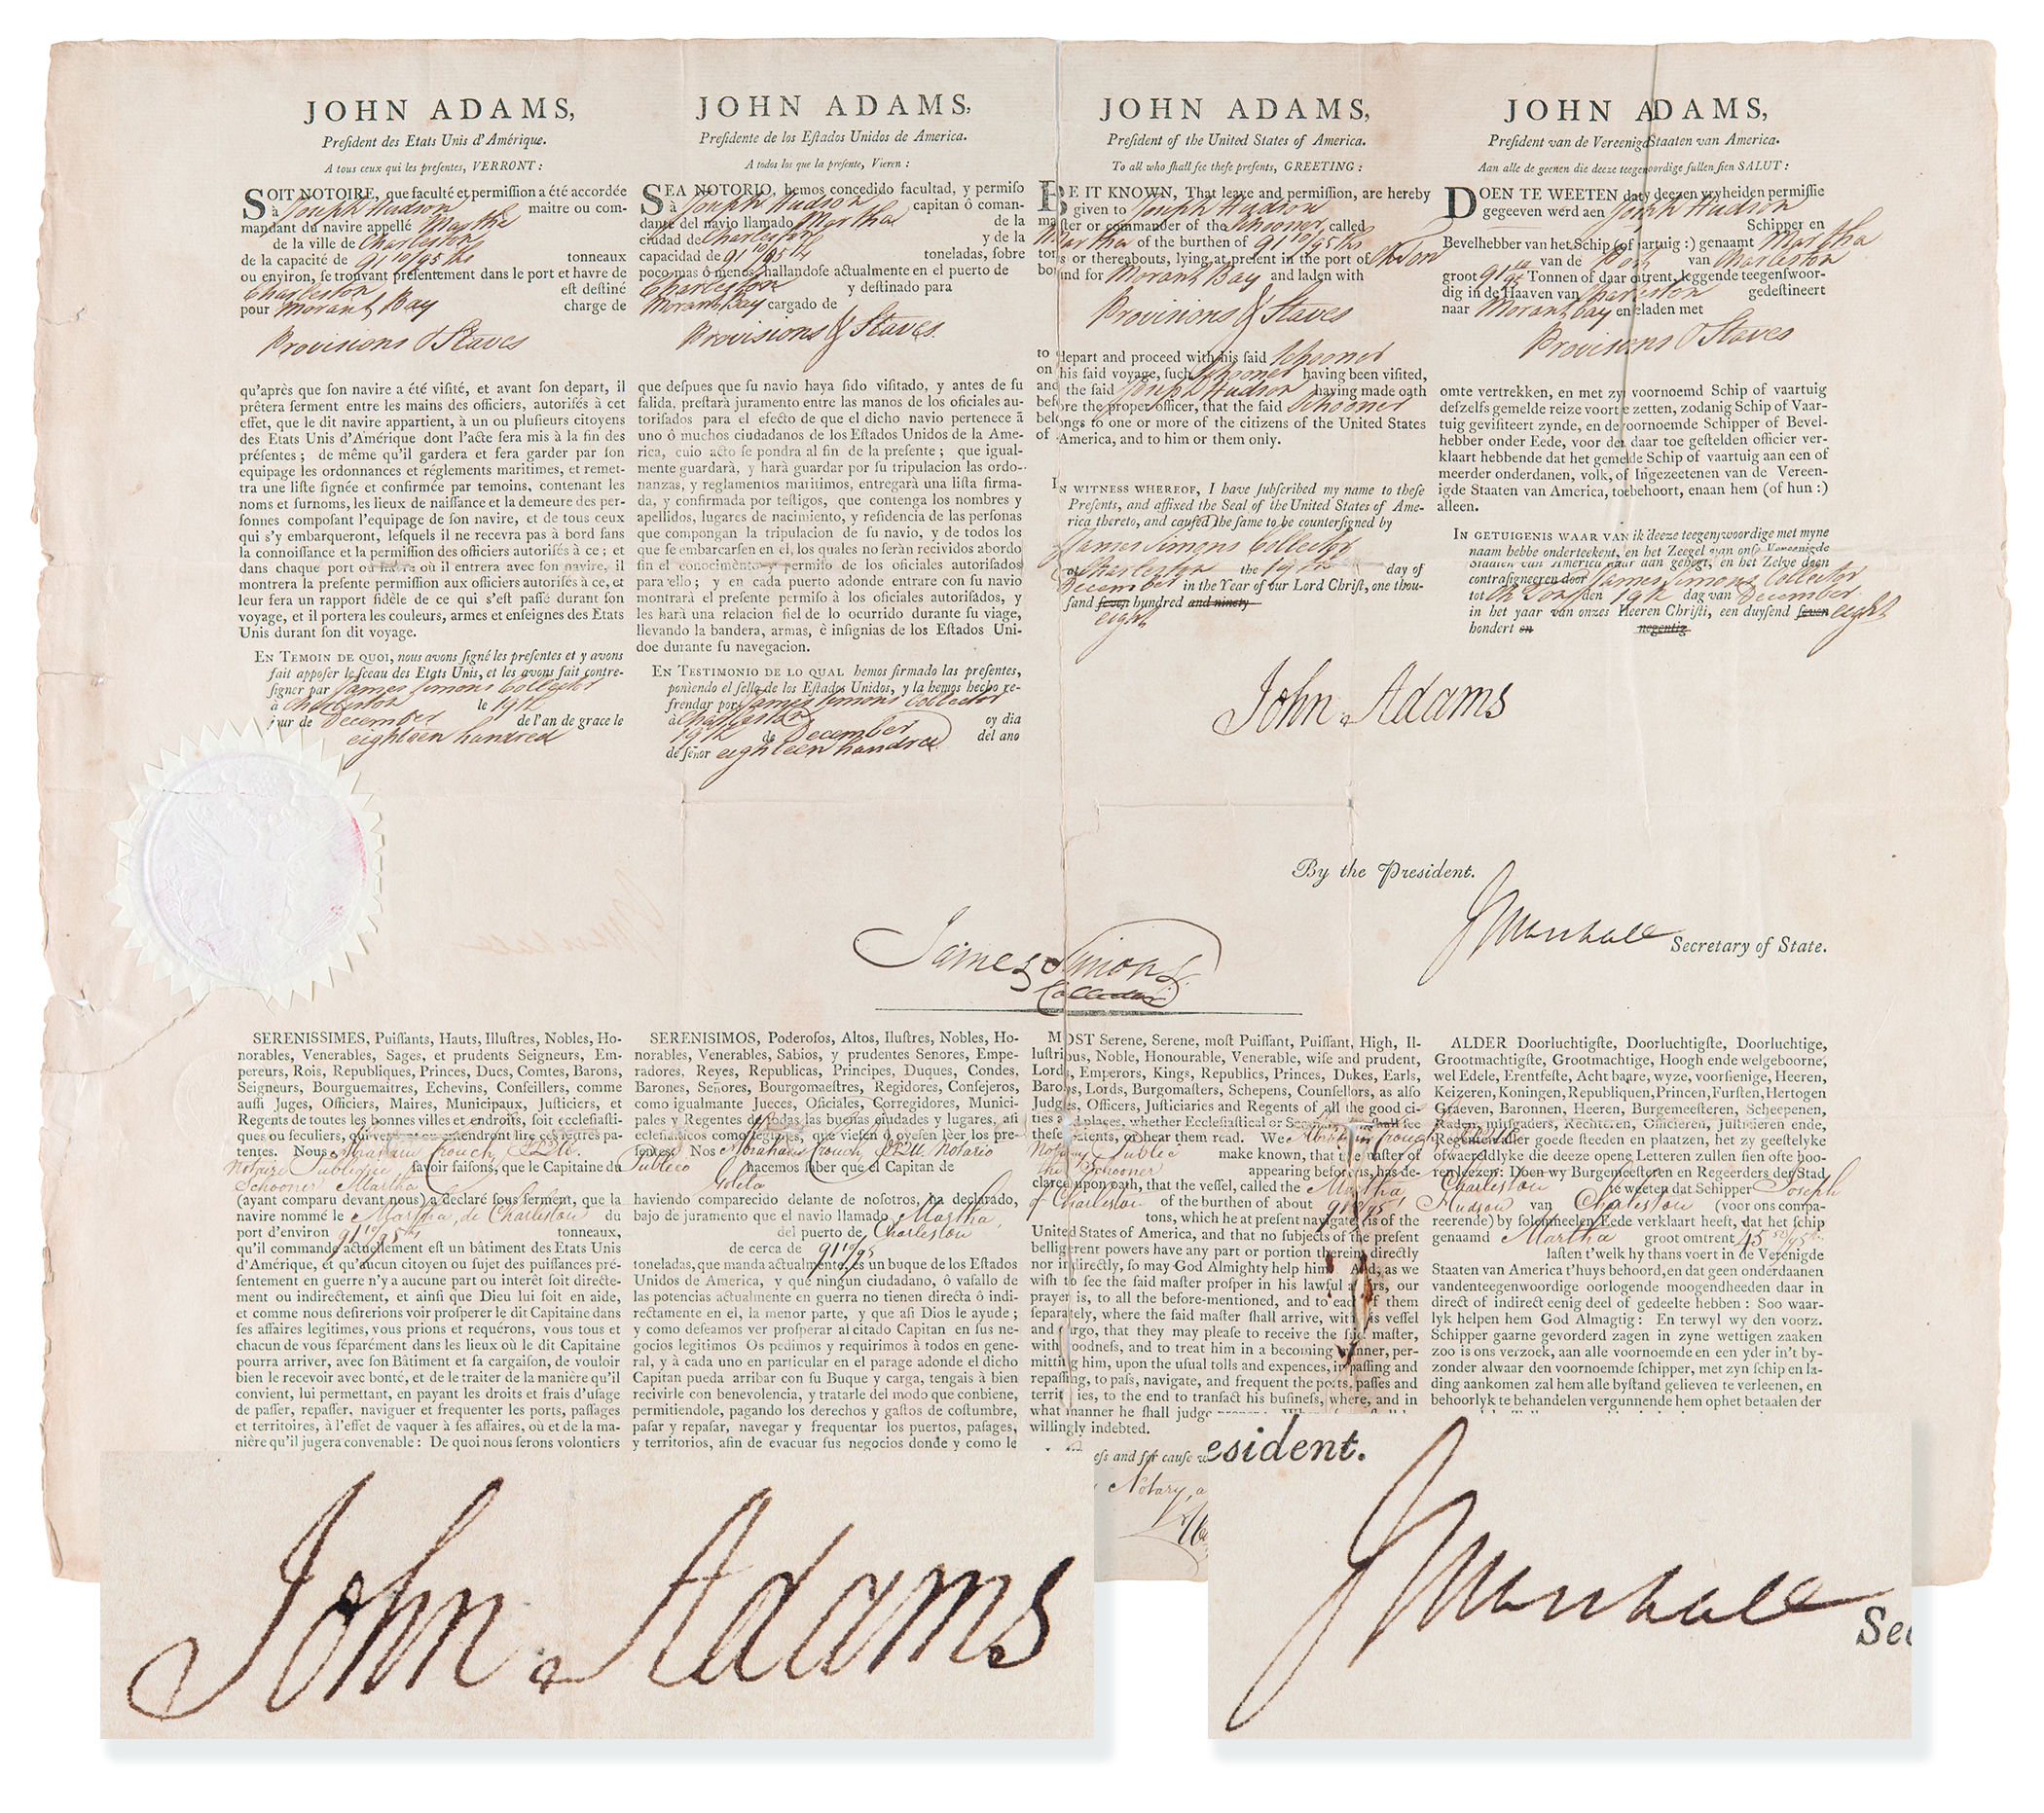 JOHN ADAMS,
President des Etats Unis d'Amérique.
A tous ceux qui les presentes, VERRONT :
SOIT NOTOIRE, que faculté et permission a été accordée
à Joseph Hudson maitre ou com-
mandant du navire appellé Martha
de la ville de Charleston
de la capacité de 91 10/95ths tonneaux
ou environ, se trouvant présentement dans le port et havre de
Charleston est destiné
pour Morant Bay charge de
Provisions & Staves
qu'après que son navire a été visité, et avant son depart, il
prêtera serment entre les mains des officiers, autorisés à cet
effet, que le dit navire appartient, à un ou plusieurs citoyens
des Etats Unis d'Amérique dont l'acte sera mis à la fin des
présentes ; de même qu'il gardera et fera garder par son
equipage les ordonnances et réglements maritimes, et remet-
tra une liste signée et confirmée par temoins, contenant les
noms et surnoms, les lieux de naissance et la demeure des per-
sonnes composant l'equipage de son navire, et de tous ceux
qui s'y embarqueront, lesquels il ne recevra pas à bord sans
la connoissance et la permission des officiers autorisés à ce ; et
dans chaque port ou havre où il entrera avec son navire, il
montrera la presente permission aux officiers autorisés à ce, et
leur fera un rapport fidèle de ce qui s'est passé durant son
voyage, et il portera les couleurs, armes et enseignes des Etats
Unis durant son dit voyage.
EN TEMOIN DE QUOI, nous avons signé les presentes et y avons
fait apposer le sceau des Etats Unis, et les avons fait contre-
signer par James Simons Collector
à Charleston le 19th
jour de December de l'an de grace le
eighteen hundred
JOHN ADAMS,
Presidente de los Estados Unidos de America.
A todos los que la presente, Vieren :
SEA NOTORIO, hemos concedido facultad, y permiso
à Joseph Hudson capitan ô coman-
dante del navio llamado Martha de la
ciudad de Charleston y de la
capacidad de 91 10/95ths toneladas, sobre
poco mas ô menos, hallandose actualmente en el puerto de
Charleston y destinado para
Morant Bay cargado de
Provisions & Staves.
que despues que su navio haya sido visitado, y antes de su
salida, prestarà juramento entre las manos de los oficiales au-
torisados para el efecto de que el dicho navio pertenece ã
uno ô muchos ciudadanos de los Estados Unidos de la Ame-
rica, cuio acto se pondra al fin de la presente ; que igual-
mente guardarà, y harà guardar por su tripulacion las ordo-
nanzas, y reglamentos maritimos, entregarà una lista firma-
da, y confirmada por testigos, que contenga los nombres y
apellidos, lugares de nacimiento, y residencia de las personas
que compongan la tripulacion de su navio, y de todos los
que se embarcarsen en el, los quales no seràn recividos abordo
sin el conocimento y permiso de los oficiales autorisados
para ello ; y en cada puerto adonde entrare con su navio
montrarà el presente permiso à los oficiales autorisados, y
les harà una relacion fiel de lo ocurrido durante su viage,
llevando la bandera, armas, è insignias de los Estados Uni-
doe durante su navegacion.
EN TESTIMONIO DE LO QUAL hemos firmado las presentes,
poniendo el sello de los Estados Unidos, y la hemos hecho re-
frendar por James Simons Collector
à Charleston oy dia
19th de December del ano
de señor eighteen hundred
JOHN ADAMS,
President of the United States of America.
To all who shall see these presents, GREETING :
BE IT KNOWN, That leave and permission, are hereby
given to Joseph Hudson
master or commander of the Schooner, called
Martha of the burthen of 91 10/95ths
tons or thereabouts, lying at present in the port of Ch Ton
bound for Morant Bay and laden with
Provisions & Staves
to depart and proceed with his said Schooner
on his said voyage, such Schooner having been visited,
and the said Joseph Hudson having made oath
before the proper officer, that the said Schooner
belongs to one or more of the citizens of the United States
of America, and to him or them only.
IN WITNESS WHEREOF, I have subscribed my name to these
Presents, and affixed the Seal of the United States of Ame-
rica thereto, and caused the same to be countersigned by
James Simons Collector
at Charleston the 19th day of
December in the Year of our Lord Christ, one thou-
sand seven hundred and ninety
eight
JOHN ADAMS,
President van de Vereenigd Staaten van America.
Aan alle de geenen die deeze teegenwoordige sullen sien SALUT :
DOEN TE WEETEN dat by deezen vryheiden permissie
gegeeven werd aen Joseph Hudson
Schipper en
Bevelhebber van het Schip (of vartuig :) genaamt Martha
van de Port van Charleston
groot 91 10/95 Tonnen of daar omtrent, leggende teegenswoor-
dig in de Haaven van Charleston gedestineert
naar Morant bay en geladen met
Provisions & Staves
omte vertrekken, en met zy voornoemd Schip of vaartuig
deszelfs gemelde reize voort te zetten, zodanig Schip of Vaar-
tuig gevisiteert zynde, en de voornoemde Schipper of Bevel-
hebber onder Eede, voor de daar toe gestelden officier ver-
klaart hebbende dat het gemelde Schip of vaartuig aan een of
meerder onderdanen, volk, of Ingezeetenen van de Vereen-
igde Staaten van America, toebehoort, enaan hem (of hun :)
alleen.
IN GETUIGENIS WAAR VAN ik deeze teegenswoordige met myne
naam hebbe onderteekent, en het Zeegel van onse Vereenigde
Staaten van America daar aan gehegt, en het Zelve doen
contrasigneeren door James Simons Collector
tot Ch Ton den 19th dag van December
in het yaar van onzes Heeren Christi, een duysend seven eight
hondert en negentig
John Adams
By the President.
J Marshall Secretary of State.
James Simons
Collector
SERENISSIMES, Puissants, Hauts, Illustres, Nobles, Ho-
norables, Venerables, Sages, et prudents Seigneurs, Em-
pereurs, Rois, Republiques, Princes, Ducs, Comtes, Barons,
Seigneurs, Bourguemaitres, Echevins, Conseillers, comme
aussi Juges, Officiers, Maires, Municipaux, Justiciers, et
Regents de toutes les bonnes villes et endroits, soit ecclesiasti-
ques ou seculiers, qui verront ou entendront lire ces lettres pa-
tentes. Nous Abraham Crouch, Notaire Publique savoir faisons, que le Capitaine du
Schooner Martha
(ayant comparu devant nous) a déclaré sous serment, que la
navire nommé le Martha, de Charleston du
port d'environ 91 10/95ths tonneaux,
qu'il commande actuellement est un bâtiment des Etats Unis
d'Amérique, et qu'aucun citoyen ou sujet des puissances pré-
sentement en guerre n'y a aucune part ou interêt soit directe-
ment ou indirectement, et ainsi que Dieu lui soit en aide,
et comme nous desirerions voir prosperer le dit Capitaine dans
ses affaires legitimes, vous prions et requérons, vous tous et
chacun de vous séparément dans les lieux où le dit Capitaine
pourra arriver, avec son Bâtiment et sa cargaison, de vouloir
bien le recevoir avec bonté, et de le traiter de la manière qu'il
convient, lui permettant, en payant les droits et frais d'usage
de passer, repasser, naviguer et frequenter les ports, passages
et territoires, à l'effet de vaquer à ses affaires, où et de la ma-
nière qu'il jugera convenable : De quoi nous serons volontiers
SERENISIMOS, Poderosos, Altos, Ilustres, Nobles, Ho-
norables, Venerables, Sabios, y prudentes Senores, Empe-
radores, Reyes, Republicas, Principes, Duques, Condes,
Barones, Señores, Bourgomaestres, Regidores, Consejeros,
como igualmante Jueces, Oficiales, Corregidores, Munici-
pales y Regentes de todas las buenas ciudades y lugares, asi
eclesiasticos como seglares, que viesen ó oyesen lèer los pre-
sentes: Nos Abraham Crouch, Notario
Publico hacemos saber que el Capitan de
Goleta
haviendo comparecido delante de nosotros, ha declarado,
bajo de juramento que el navio llamado Martha,
del puerto de Charleston
de cerca de 91 10/95
toneladas, que manda actualmente, es un buque de los Estados
Unidos de America, y que ningun ciudadano, ô vasallo de
las potencias actualmente en guerra no tienen directa ô indi-
rectamente en el, la menor parte, y que asi Dios le ayude ;
y como deseamos ver prosperar al citado Capitan en sus ne-
gocios legitimos Os pedimos y requirimos à todos en gene-
ral, y à cada uno en particular en el parage adonde el dicho
Capitan pueda arribar con su Buque y carga, tengais à bien
recivirle con benevolencia, y tratarle del modo que conbiene,
permitiendole, pagando los derechos y gastos de costumbre,
pasar y repasar, navegar y frequentar los puertos, pasages,
y territorios, afin de evacuar sus negocios donde y como le
MOST Serene, Serene, most Puissant, Puissant, High, Il-
lustrious, Noble, Honourable, Venerable, wise and prudent,
Lords, Emperors, Kings, Republics, Princes, Dukes, Earls,
Barons, Lords, Burgomasters, Schepens, Counsellors, as also
Judges, Officers, Justiciaries and Regents of all the good ci-
ties and places, whether Ecclesiastical or Secular shall see
these patents, or hear them read. We Abraham Crouch
Notary Public make known, that the master of
the Schooner appearing before us, has de-
clared upon oath, that the vessel, called the Martha
of Charleston of the burthen of about 91 10/95ths
tons, which he at present navigates, is of the
United States of America, and that no subjects of the present
belligerent powers have any part or portion therein, directly
nor indirectly, so may God Almighty help him. And, as we
wish to see the said master prosper in his lawful affairs, our
prayer is, to all the before-mentioned, and to each of them
separately, where the said master shall arrive, with his vessel
and cargo, that they may please to receive the said master,
with goodness, and to treat him in a becoming manner, per-
mitting him, upon the usual tolls and expences, in passing and
repassing, to pass, navigate, and frequent the ports, passes and
territories, to the end to transact his business, where, and in
what manner he shall judge
willingly indebted.
ess and for cause
Notary, a
ALDER Doorluchtigste, Doorluchtigste, Doorluchtige,
Grootmachtigste, Grootmachtige, Hoogh ende welgeboorne,
wel Edele, Erentfeste, Acht baare, wyze, voorsienige, Heeren,
Keizeren, Koningen, Republiquen, Princen, Fursten, Hertogen
Graeven, Baronnen, Heeren, Burgemeesteren, Scheepenen,
Raden, mitsgaders, Rechteren, Officieren, Justicieren ende,
Regenten aller goede steeden en plaatzen, het zy geestelyke
ofwaereldlyke die deeze opene Letteren zullen sien ofte hoo-
ren leezen: Doen wy Burgemeesteren en Regeerders der Stad
Charleston te weeten dat Schipper Joseph
Hudson van Charleston (voor ons compa-
reerende) by solemneelen Eede verklaart heeft, dat het schip
genaamd Martha groot omtrent 45
lasten t'welk hy thans voert in de Verenigde
Staaten van America t'huys behoord, en dat geen onderdaanen
vandenteegenwoordige oorlogende moogendheeden daar in
direct of indirect eenig deel of gedeelte hebben : Soo waar-
lyk helpen hem God Almagtig : En terwyl wy den voorz.
Schipper gaarne gevorderd zagen in zyne wettigen zaaken
zoo is ons verzoek, aan alle voornoemde en een yder in't by-
zonder alwaar den voornoemde schipper, met zyn schip en la-
ding aankomen zal hem alle bystand gelieven te verleenen, en
behoorlyk te behandelen vergunnende hem ophet betaalen der
John Adams
esident.
J Marshall
Sec